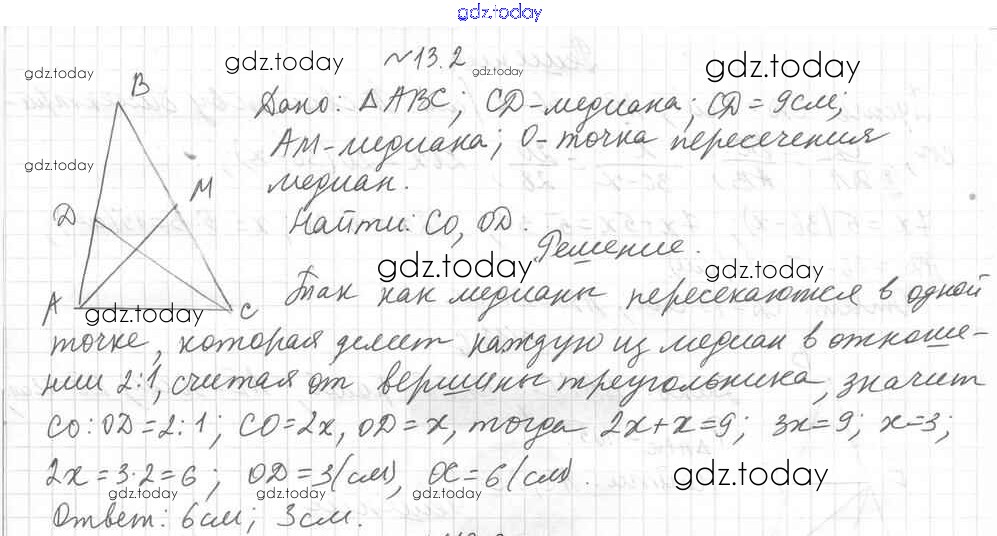 gdz.today
gdz.today gdz.today № 13.2 gdz.today gdz.today
B
Дано: △ABC; CD-медиана; CD=9см;
AM-медиана; O-точка пересечения
gdz.today
M медиан.
D Найти: CO, OD.
Решение.
gdz.today gdz.today
A gdz.today C Так как медианы пересекаются в одной
точке, которая делит каждую из медиан в отноше-
нии 2:1, считая от вершины треугольника, значит
CO:OD=2:1; CO=2x, OD=x, тогда 2x+x=9; 3x=9; x=3;
2x=3·2=6; OD=3(см), OC=6(см).
gdz.today gdz.today gdz.today gdz.today
Ответ: 6см; 3см.